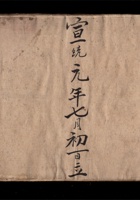 宣統元年七月初一日立